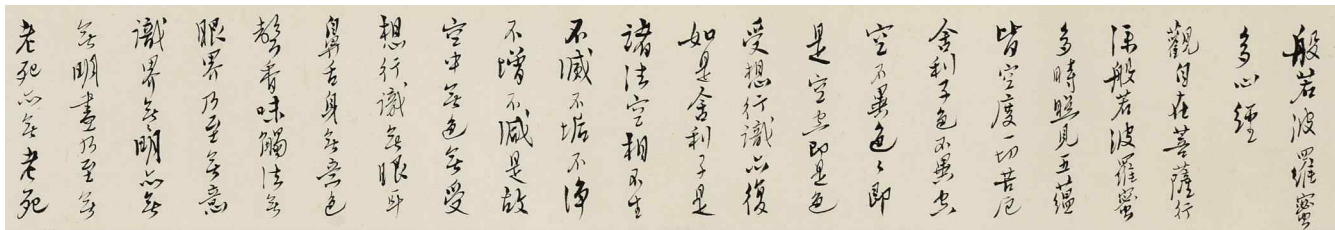 般若波羅蜜
多心經
觀自在菩薩行
深般若波羅蜜
多時照見五蘊
皆空度一切苦厄
舍利子色不異空
空不異色々即
是空空即是色
受想行識亦復
如是舍利子是
諸法空相不生
不滅不垢不淨
不增不減是故
空中無色無受
想行識無眼耳
鼻舌身無意色
聲香味觸法無
眼界乃至無意
識界無々明亦無
無明盡乃至無
老死亦無老死